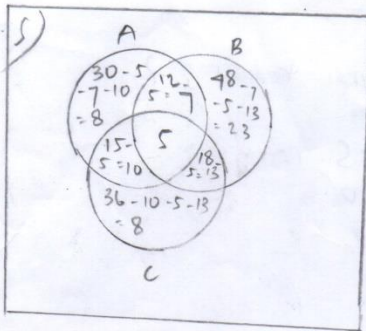 5)
A
B
30-5
-7-10
=8
12-
5=7
48-7
-5-13
=23
5
15-
5=10
18-
5=13
36-10-5-13
=8
C